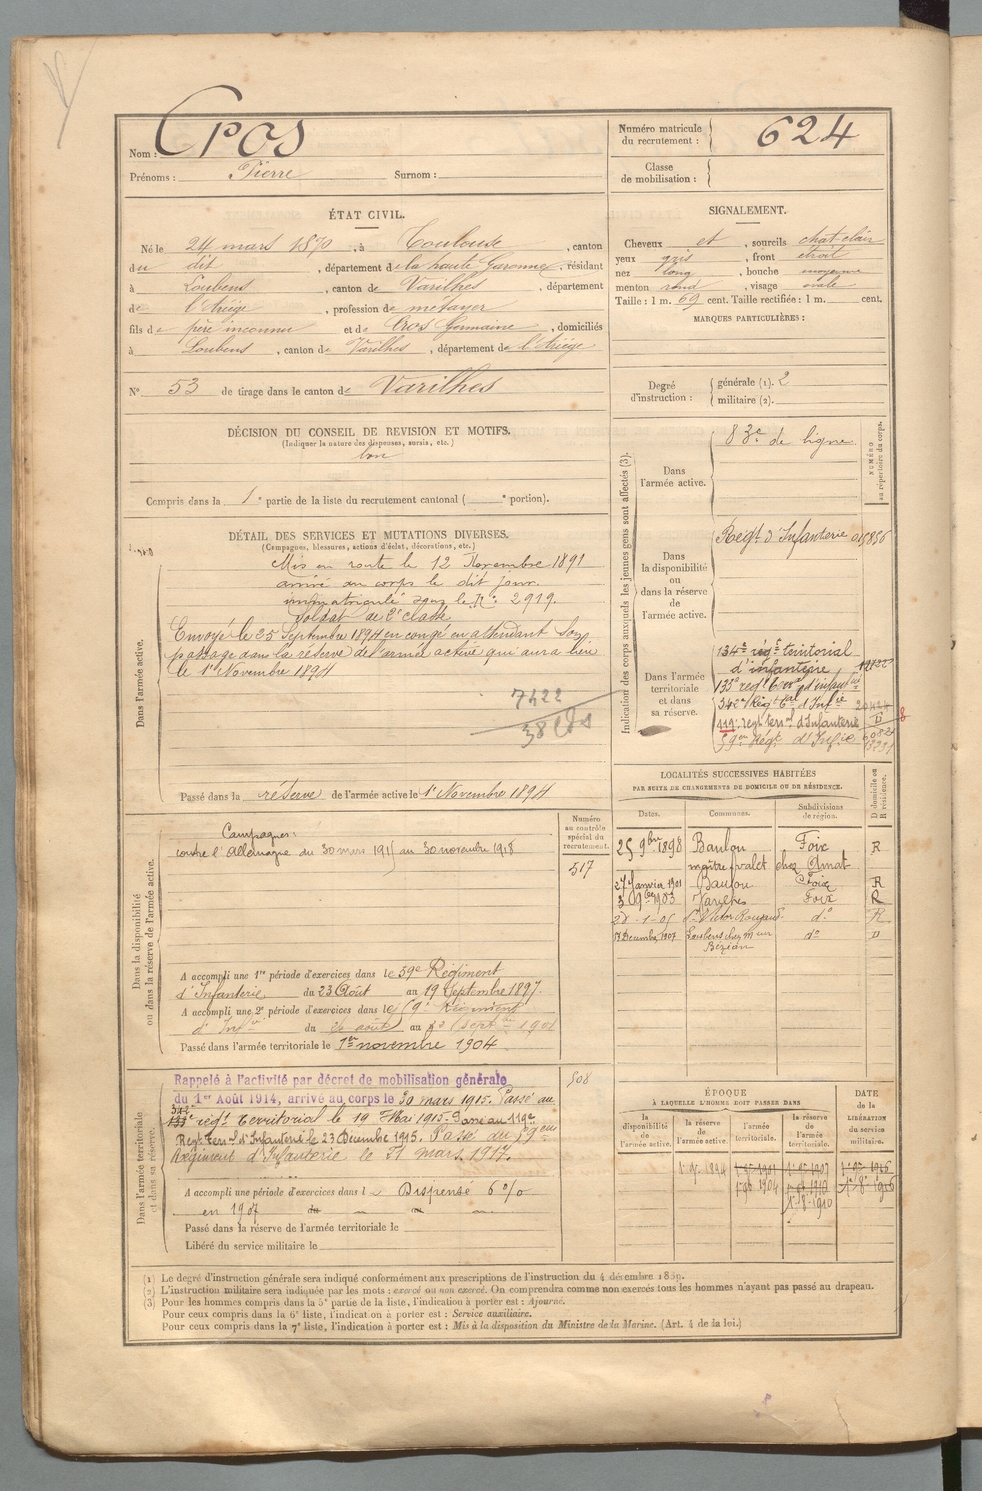 Nom : Cros
Prénoms : Pierre Surnom :
Numéro matricule du recrutement : 624
Classe de mobilisation :
ÉTAT CIVIL.
Né le 24 mars 1870, à Toulouse, canton
du dit, département de la haute Garonne, résidant
à Loubens, canton de Varilhes, département
de l'Ariège, profession de métayer
fils de père inconnu et de Cros Germaine, domiciliés
à Loubens, canton de Varilhes, département de l'Ariège
N° 53 de tirage dans le canton de Varilhes
SIGNALEMENT.
Cheveux et, sourcils chat clair
yeux gris, front étroit
nez long, bouche moyenne
menton rond, visage ovale
Taille : 1 m. 69 cent. Taille rectifiée : 1 m. cent.
MARQUES PARTICULIÈRES :
Degré d'instruction : générale (1). 2
militaire (2).
DÉCISION DU CONSEIL DE REVISION ET MOTIFS.
(Indiquer la nature des dispenses, sursis, etc.)
bon
Compris dans la 1e partie de la liste du recrutement cantonal ( e portion).
DÉTAIL DES SERVICES ET MUTATIONS DIVERSES.
(Campagnes, blessures, actions d'éclat, décorations, etc.)
Dans l'armée active.
Mis en route le 12 Novembre 1891
arrivé au corps le dit jour.
immatriculé sous le N°: 2919.
Soldat de 2e classe
Envoyé le 25 Septembre 1894 en congé en attendant son
passage dans la réserve de l'armée active qui aura lieu
le 1er Novembre 1894
7422
38
Passé dans la réserve de l'armée active le 1er Novembre 1894
Indication des corps auxquels les jeunes gens sont affectés (3).
NUMÉRO au répertoire du corps.
Dans l'armée active.
83e de ligne
Dans la disponibilité ou dans la réserve de l'armée active.
Régt d'Infanterie
Dans l'armée territoriale et dans sa réserve.
134e régt territorial
d'infanterie
133e regt terral d'infantie
342e Régt tal d'Infie
119e regt terral d'Infanterie
59eme Régt d'Infie
LOCALITÉS SUCCESSIVES HABITÉES
PAR SUITE DE CHANGEMENTS DE DOMICILE OU DE RÉSIDENCE.
D domicile ou R résidence.
Dates. Communes. Subdivisions de région.
25 9bre 1898 Baulou Foix R
maître valet chez Amat
27 Janvier 1901 Baulou Foix R
3 9bre 1903 Varilhes Foix R
St Victor Rouzaud do R
17 Décembre 1907 Loubens chez Mr Bézian do D
Dans la disponibilité ou dans la réserve de l'armée active.
Numéro au contrôle spécial du recrutement.
517
Campagnes :
contre l'Allemagne du 30 mars 1915 au 30 novembre 1918
A accompli une 1re période d'exercices dans le 59e Régiment
d'Infanterie du 23 Août au 19 Septembre 1897.
A accompli une 2e période d'exercices dans le 59e Régiment
Passé dans l'armée territoriale le 1er novembre 1904
Dans l'armée territoriale et dans sa réserve.
808
Rappelé à l'activité par décret de mobilisation générale
du 1er Août 1914, arrivé au corps le 30 mars 1915. Passé au
342e 133e régt Territorial le 19 Mai 1915. Passé au 119e
Regt Terral d'Infanterie le 23 Décembre 1915. Passé au 59eme
Régiment d'Infanterie le 31 mars 1917.
A accompli une période d'exercices dans l Dispensé 6 o/o
en 1907 du
Passé dans la réserve de l'armée territoriale le
Libéré du service militaire le
ÉPOQUE
À LAQUELLE L'HOMME DOIT PASSER DANS
la disponibilité de l'armée active.
la réserve de l'armée active.
l'armée territoriale.
la réserve de l'armée territoriale.
DATE de la LIBÉRATION du service militaire.
1er 9bre 1894
(1) Le degré d'instruction générale sera indiqué conformément aux prescriptions de l'instruction du 4 décembre 1889.
(2) L'instruction militaire sera indiquée par les mots : exercé ou non exercé. On comprendra comme non exercés tous les hommes n'ayant pas passé au drapeau.
(3) Pour les hommes compris dans la 5e partie de la liste, l'indication à porter est : Ajourné.
Pour ceux compris dans la 6e liste, l'indication à porter est : Service auxiliaire.
Pour ceux compris dans la 7e liste, l'indication à porter est : Mis à la disposition du Ministre de la Marine. (Art. 4 de la loi.)